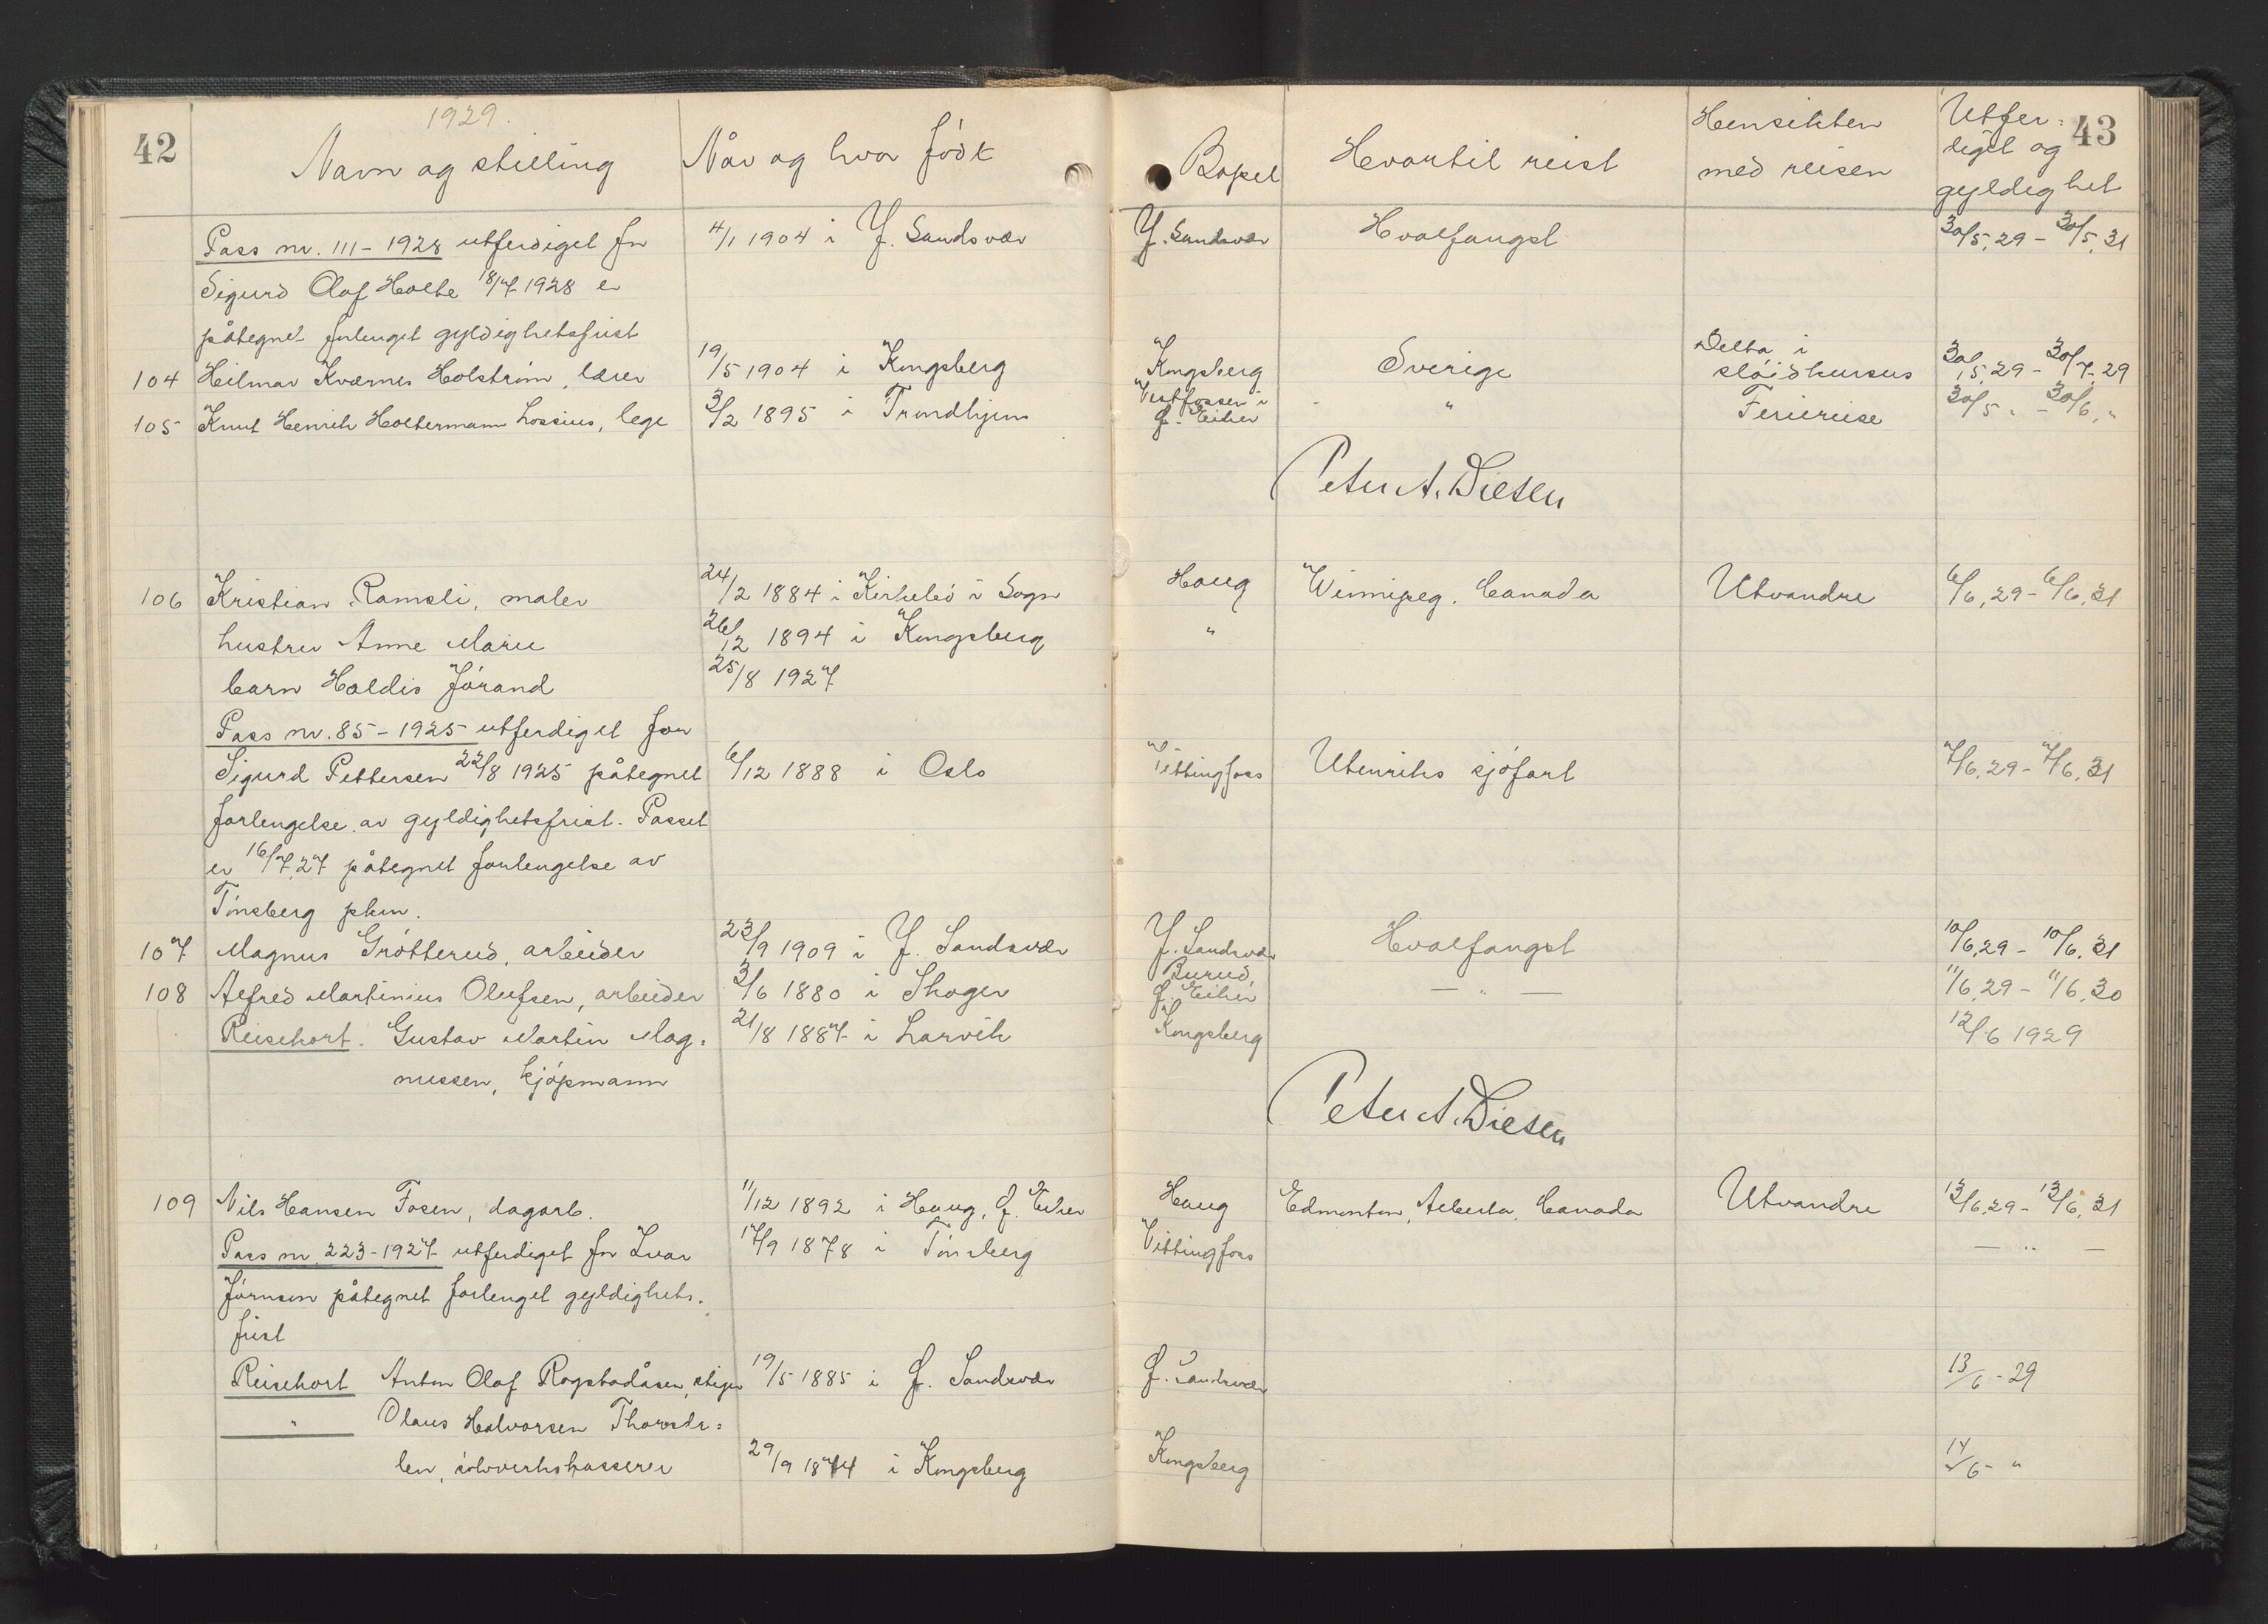 42
1929.
Navn og stilling
Når og hvor født
Bopel
Hvortil reist
Hensikten
med reisen
Utfer-
diget og
gyldighet
43
Pass nr. 111-1928 utferdiget for 4/1 1904 i Y. Sandsvær Y. Sandsvær Hvalfangst 30/5.29 - 30/5.31
Sigurd Olaf Holte 18/7 1928 er
påtegnet forlenget gyldighetsfrist
104 Hilmar Kværnes Holstrøm, lærer 19/5 1904 i Kongsberg Kongsberg Sverige Delta i sløidkursus 30/5.29 - 30/7.29
105 Knut Henrik Holtermann Lossius, lege 3/2 1895 i Trondhjem Vestfossen i Ø. Eiker " Feriereise 30/5 " - 30/6 "
Peter A. Diesen
106 Kristian Ramsli, maler 24/2 1884 i Kirkebø i Sogn Haug Winnipeg. Canada Utvandre 6/6.29 - 6/6.31
hustru Anne Marie 26/12 1894 i Kongsberg "
barn Haldis Jørand 25/8 1927
Pass nr. 85-1925 utferdiget for
Sigurd Pettersen 22/8 1925 påtegnet 6/12 1888 i Oslo Vittingfoss Utenriks sjøfart 7/6.29 - 7/6.31
forlengelse av gyldighetsfrist. Passet
er 16/7.27 påtegnet forlengelse av
Tønsberg pkm.
107 Magnus Grøtterud, arbeider 23/9 1909 i Y. Sandsvær Y. Sandsvær Hvalfangst 10/6.29 - 10/6.31
108 Alfred Martinius Olufsen, arbeider 3/6 1880 i Skoger Burud, Ø. Eiker — " — 11/6.29 - 11/6.30
Reisekort. Gustav Martin Mag- 21/8 1887 i Larvik Kongsberg 12/6 1929
nussen, kjøpmann
Peter A. Diesen
109 Nils Hansen Fosen, dagarb. 11/12 1892 i Haug, Ø. Eiker Haug Edmonton, Alberta, Canada Utvandre 13/6.29 - 13/6.31
Pass nr. 223-1927 utferdiget for Ivar 17/9 1878 i Tønsberg Vittingfoss — " —
Jørnsen påtegnet forlenget gyldighets-
frist
Reisekort Anton Olaf Rogstadåsen, stiger 19/5 1885 i Ø. Sandsvær Ø. Sandsvær 13/6 - 29
" Olaus Halvorsen
len, sølvverkskasserer 29/9 1874 i Kongsberg Kongsberg 14/6 - "